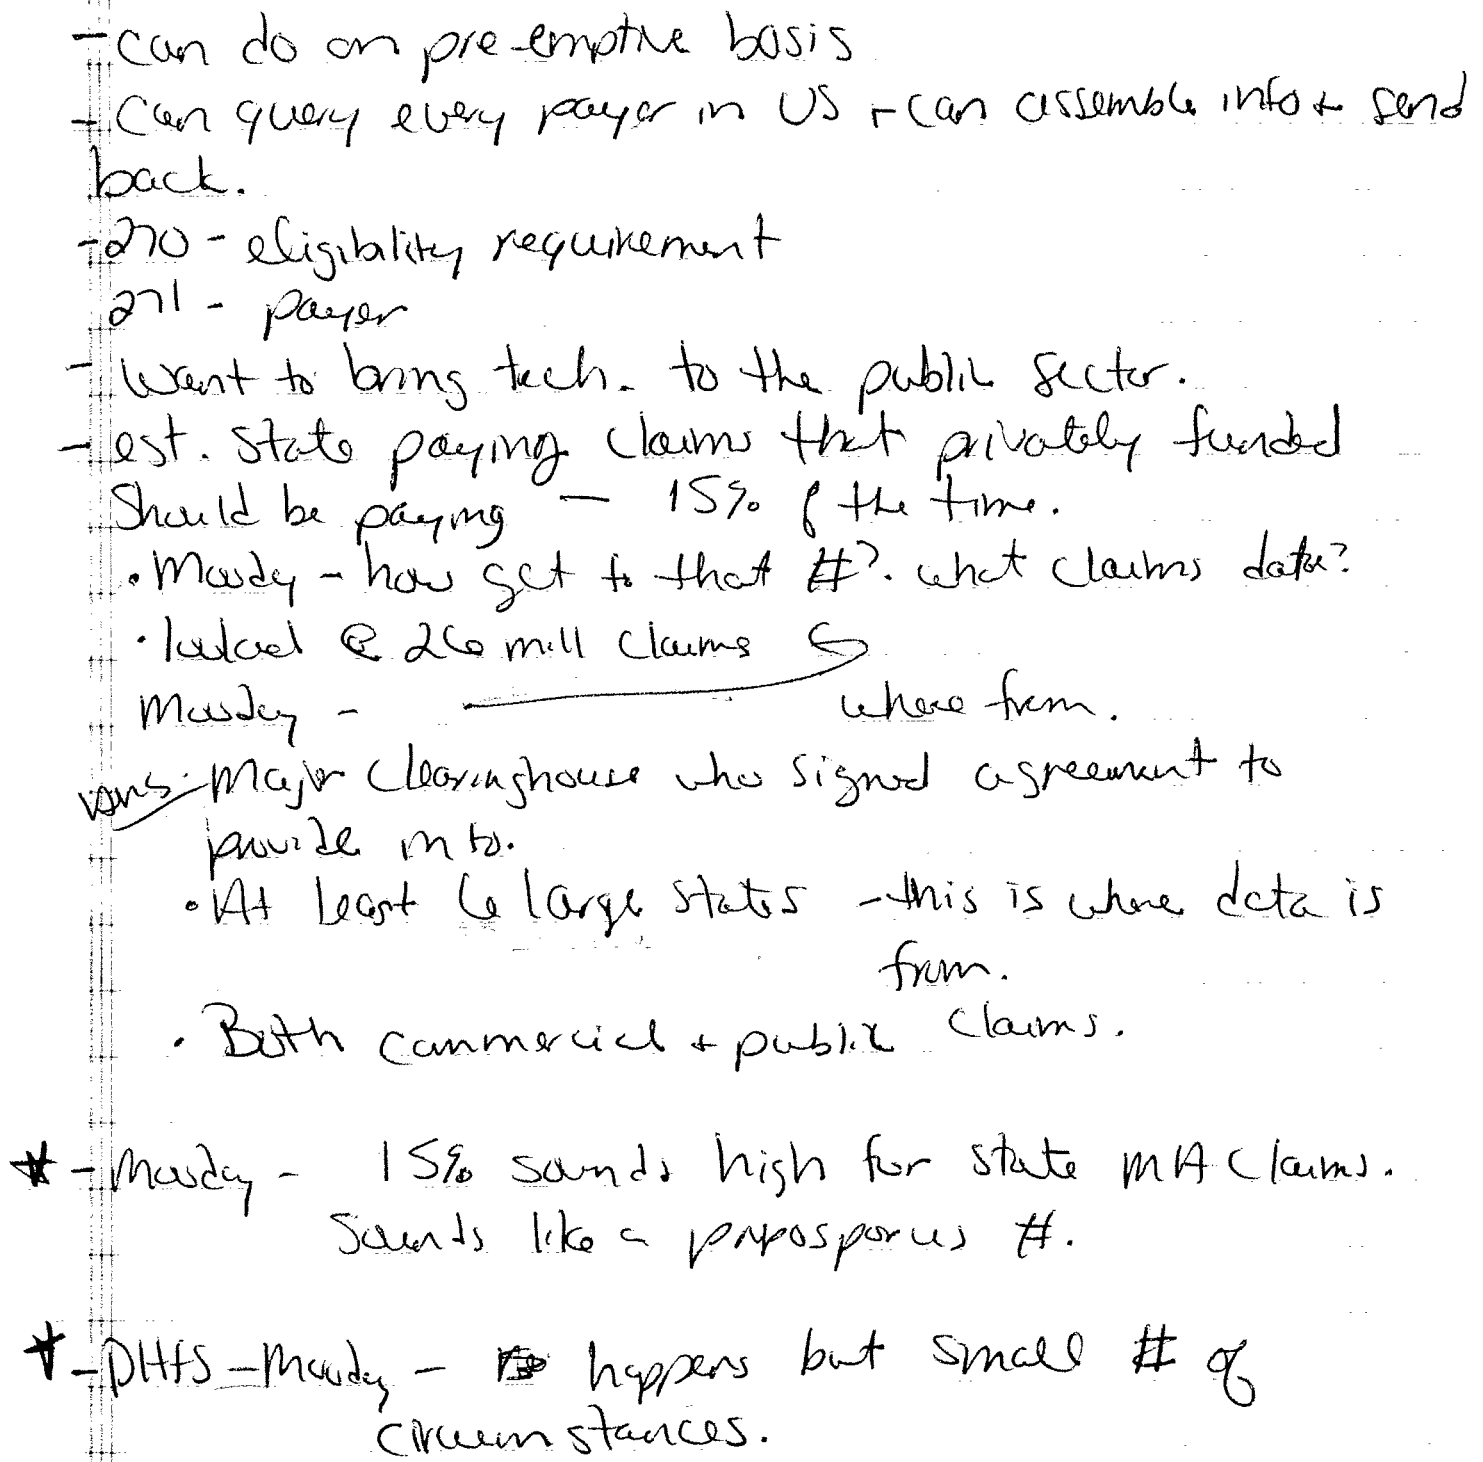 - can do on pre-emptive basis
- Can query every payer in US + can assemble info + send
back.
- 270 - eligibility requirement
271 - payer
- Want to bring tech. to the public sector.
- est. State paying claims that privately funded
Should be paying - 15% of the time.
• Moody - how get to that #? what claims data?
• looked @ 26 mill claims
Moody - where from.
ans. • Major Clearinghouse who signed agreement to
provide info.
• At least 6 large states - this is where data is
from.
• Both commercial + public claims.
* - Moody - 15% sounds high for state MA Claims.
Sounds like a preposporus #.
* - DHFS - Moody - happens but small # of
circumstances.